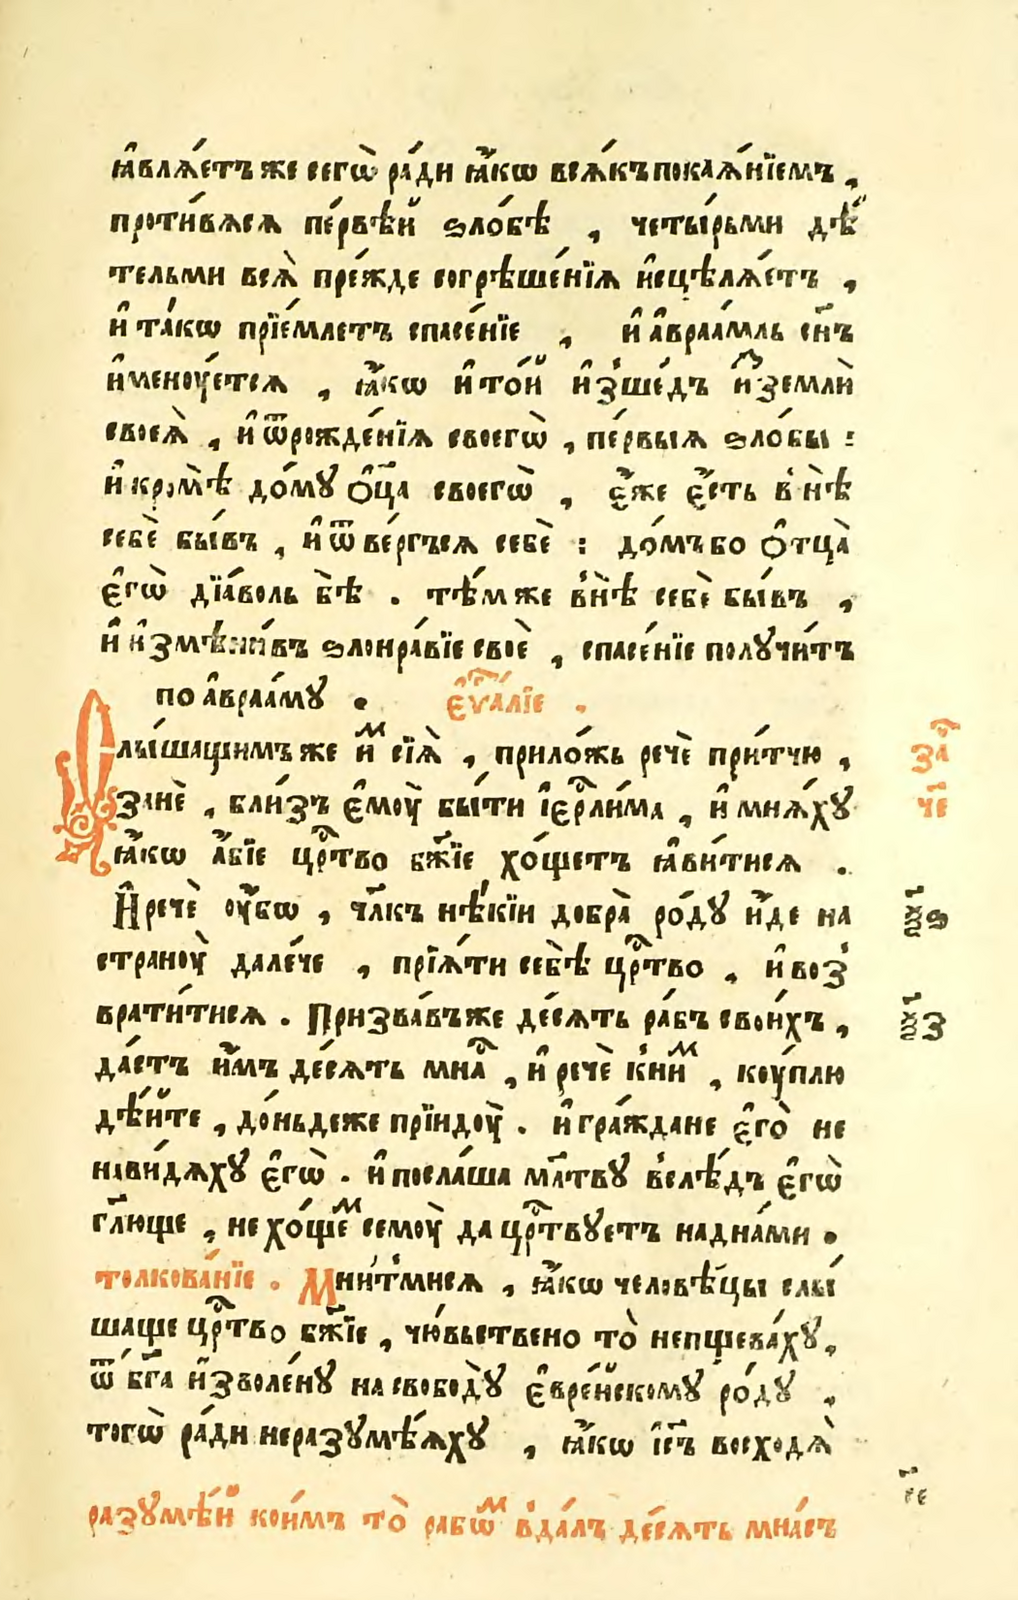 ꙗ҆влѧ́етъ же сегѡ̀ ра́ди ꙗ҆́кѡ всѧ́къ покаѧ́нїемъ ,
проти́вѧсѧ пе́рвѣй ѕло́бѣ , четы́рьми дѣ́
тельми всѧ̀ пре́жде согрѣше́нїѧ и҆сцѣлѧ́етъ ,
и҆ та́кѡ прїе́млетъ спасе́нїе , и҆ а҆враа́мль сн҃ъ
и҆менꙋ́етсѧ , ꙗ҆́кѡ и҆ то́й и҆зше́дъ и҆зземлѝ
своеѧ̀ , и҆ ѿрожде́нїѧ своегѡ̀ , пе́рвыѧ ѕло́бы :
и҆ кромѣ̀ до́мꙋ ѻ҆ц҃а своегѡ̀ , є҆́же є҆́сть внѣ̀
себѐ бы́въ , и҆ ѿве́ргъсѧ себѐ : до́мъ бо ѻ҆тца̀
є҆гѡ̀ дїа́волъ бѣ̀ . тѣ́мже внѣ̀ себѐ бы́въ ,
и҆ и҆змѣни́въ ѕлонра́вїе своѐ , спасе́нїе полꙋчи́тъ
по а҆враа́мꙋ . є҆ѵⷢ҇а́лїе .
Слы́шащимъ же и҆ⷨ сїѧ̀ , прило́жь речѐ при́тчю , заⷱ҇
занѐ , бли́зъ є҆мꙋ̀ бы́ти і҆ерⷭ҇ли́ма , и҆ мнѧ́хꙋ ч҃е
ꙗ҆́кѡ а҆́бїе црⷭ҇тво бж҃їе хо́щетъ ꙗ҆ви́тисѧ .
И҆ речѐ ᲂу҆́бѡ , чл҃къ нѣ́кїи добра̀ ро́дꙋ и҆́де на
странꙋ̀ дале́че , прїѧ́ти себѣ̀ црⷭ҇тво , и҆ воз
врати́тисѧ . Призва́въже де́сѧть ра́бъ свои́хъ ,
да́стъ и҆́мъ де́сѧть мнаⷭ҇ , и҆ речѐ кни́ⷨ , кꙋ́плю
дѣ́йте , до́ньдеже прїидꙋ̀ . и҆ гра́ждане є҆го̀ не
нави́дѧхꙋ є҆гѡ̀ . и҆ посла́ша мл҃твꙋ вслѣ́дъ є҆гѡ̀
гл҃юще , не хо́щеⷨ семꙋ̀ да црⷭ҇твꙋетъ наднами .
толкова́нїе . Мни́тмисѧ , ꙗ҆́кѡ человѣ́цы слы́
шаще црⷭ҇тво бж҃їе , чю́вьствено то̀ непщева́хꙋ ,
ѿ бг҃а и҆зволе́нꙋ на свободꙋ̀ є҆вре́йскомꙋ ро́дꙋ ,
тогѡ̀ ра́ди неразꙋмѣ́ѧхꙋ , ꙗ҆́кѡ і҆с҃ъ восходѧ̀
разꙋмѣ́й кои́мъ то̀ рабѡ́ⷨ вда́лъ де́сѧть мна́съ